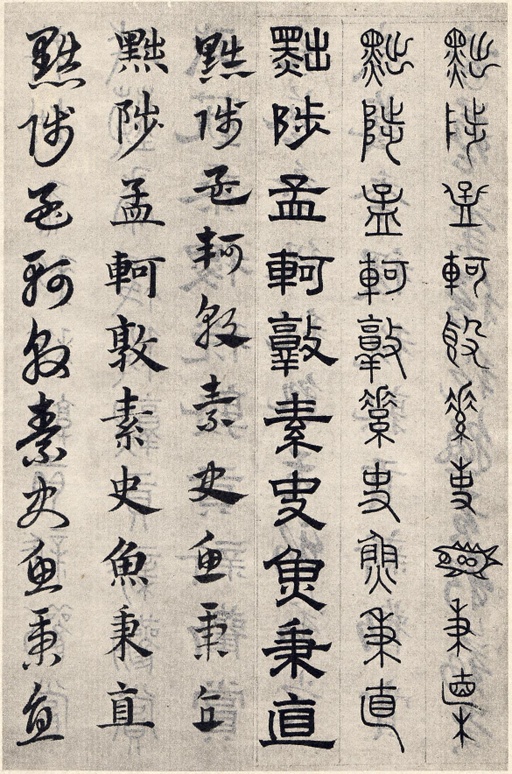 黜陟孟軻敦素史魚秉直
黜陟孟軻敦素史魚秉直
黜陟孟軻敦素史魚秉直
黜陟孟軻敦素史魚秉直
黜陟孟軻敦素史魚秉直
黜陟孟軻敦素史魚秉直